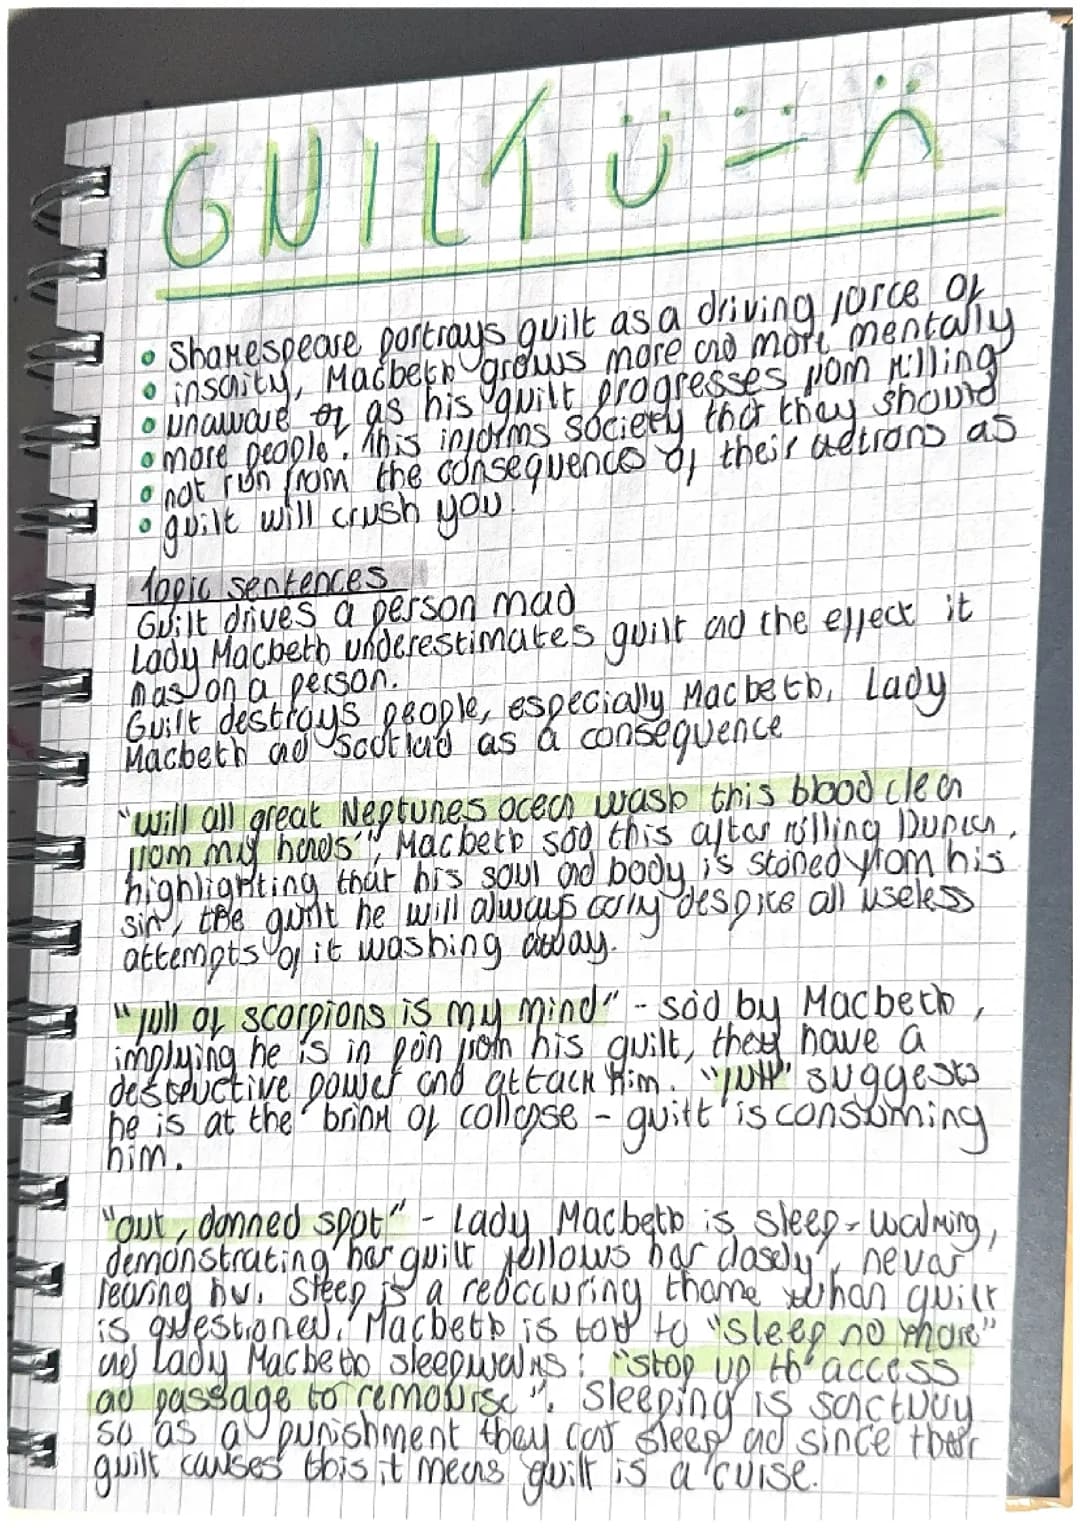 GUILT
• Shakespeare portrays guilt as a driving force of
• insanity, Macbeth grows more and more mentally
• unaware of as his guilt progresses from killing
• more people. This informs society that they should
• not run from the consequences of their actions as
• guilt will crush you.
Topic sentences
Guilt drives a person mad
Lady Macbeth underestimates guilt ad the effect it
has on a person.
Guilt destroys people, especially Macbeth, Lady
Macbeth ad Scotland as a consequence
"will all great Neptunes ocean wash this blood clean
from my hands", Macbeth said this after killing Duncan,
highlighting that his soul and body is stoned from his
sin, the guilt he will always carry despite all useless
attempts of it washing away.
"full of scorpions is my mind" - said by Macbeth,
implying he is in pain from his guilt, they have a
destructive power and attack him. "full" suggests
he is at the brink of collapse - guilt is consuming
him.
"out, damned spot" - Lady Macbeth is sleep-walking,
demonstrating her guilt follows her closely, never
leaving her. Sleep is a reoccuring theme when guilt
is questioned. Macbeth is told to "sleep no more"
and Lady Macbeth sleepwalks: "stop up th'access
ad passage to remourse". Sleeping is sanctuary
so as a punishment they cant sleep ad since their
guilt causes this it means guilt is a curse.